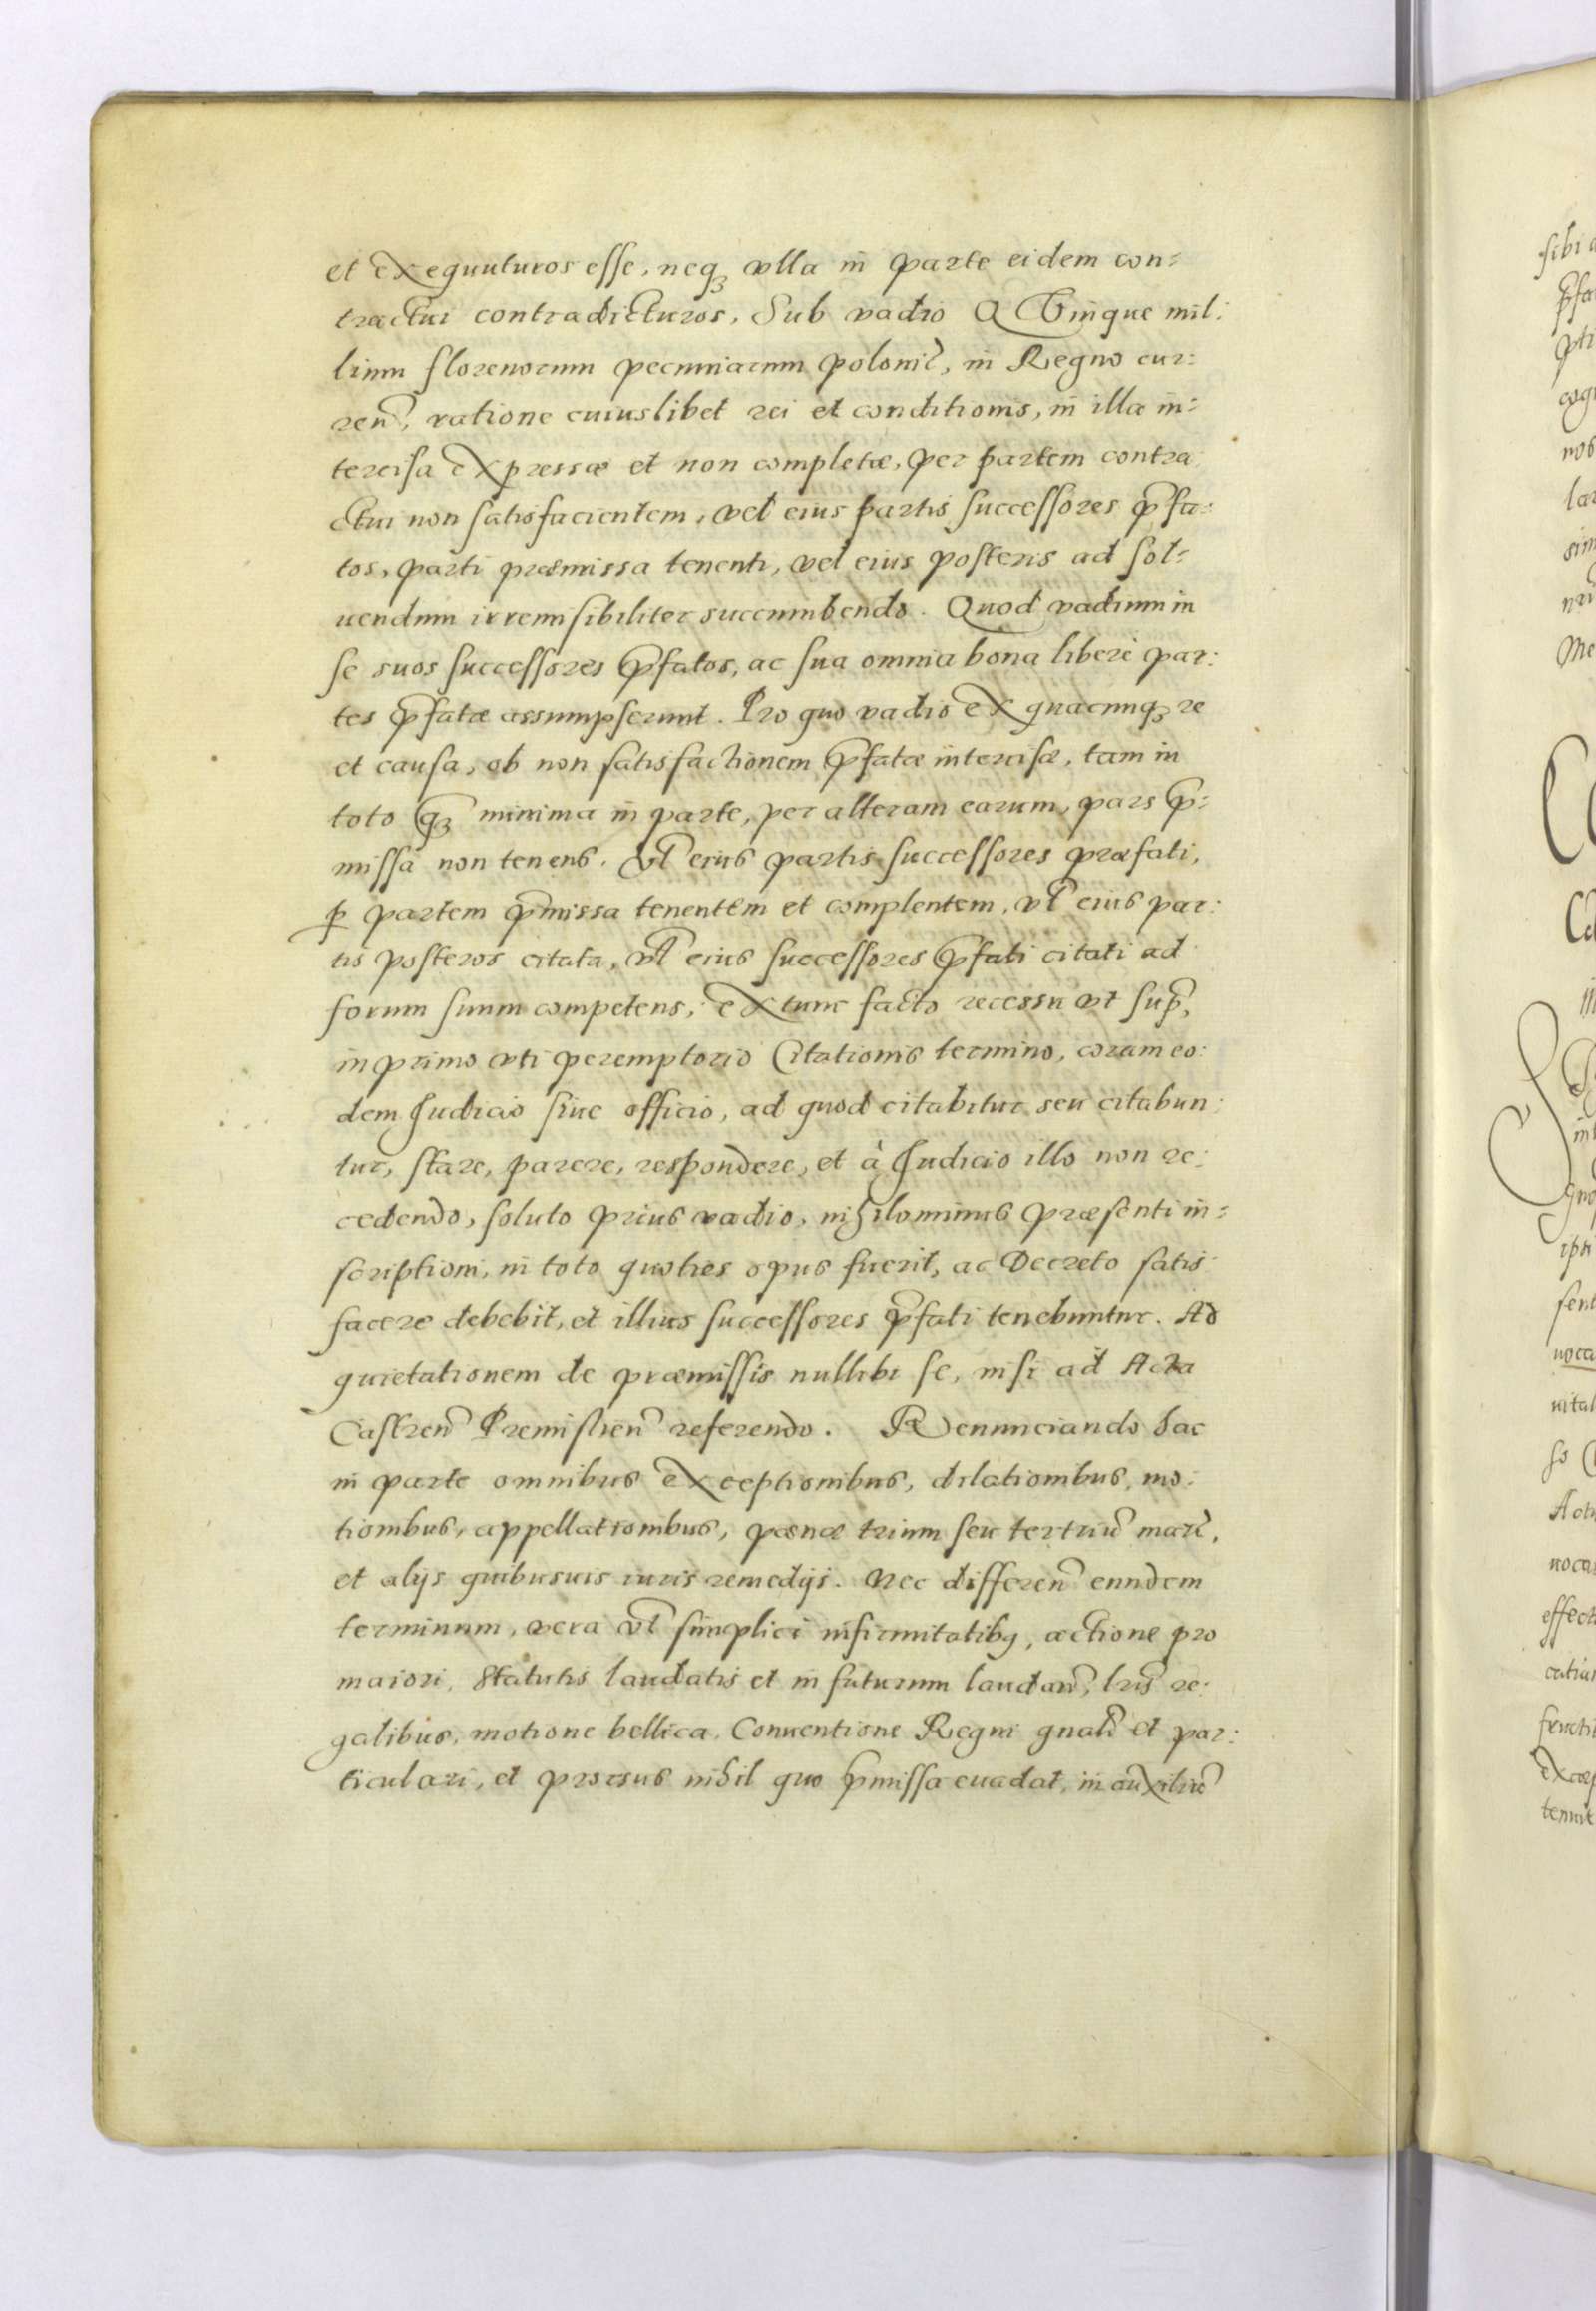 et exequuturos esse, neq; vlla in parte eidem con=
tractui contradicturos, Sub vadio Quinque mil:
lium florenorum pecuniarum polonic̄, in Regno cur:
ren̄, ratione cuiuslibet rei et conditionis, in illa in=
tercisa expressæ et non completæ, per partem contra
ctui non satisfacientem, vel eius partis successores p̄fa=
tos, parti præmissa tenenti, vel eius posteris ad sol=
uendum irremisibiliter succumbendo. Quod vadium in
se suos successores p̄fatos, ac sua omnia bona libere par:
tes p̄fatæ assumpserunt. Pro quo vadio ex quacunq; re
et causa, ob non satisfactionem p̄fatæ intercisæ, tam in
toto q̄; minima in parte, per alteram earum, pars p̄=
missa non tenens. vl̄ eius partis successores præfati,
ꝑ partem p̄missa tenentem et complentem, vl̄ eius par:
tis posteros citata, vl̄ eius successores p̄fati citati ad
forum suum competens, extunc facto recessu vt sup̄,
in primo vti peremptorio Citationis termino, coram eo:
dem Judicio siue officio, ad quod citabitur seu citabun:
tur, stare, parere, respondere, et à Judicio illo non re:
cedendo, soluto prius vadio, nihilominus præsenti in=
scriptioni, in toto quoties opus fuerit, ac Decreto satis
facere debebit, et illius successores p̄fati tenebuntur. Ad
quietationem de præmissis nullibi se, nisi ad Acta
Castren̄ Premislien̄ referendo. Renunciando hac
in parte omnibus exceptionibus, dilationibus, mo:
tionibus, appellationibus, pœnæ trium seu
et alijs quibusuis iuris remedijs. Nec differen̄ eundem
terminum, vera vl̄ simplici infirmitatibq, actione pro
maiori, Statutis laudatis et in futurum laudan̄, lr̄is re:
galibus, motione bellica, Conuentione Regni gnali et par:
ticulari, et prorsus nihil quo p̄missa euadat, in auxiliū